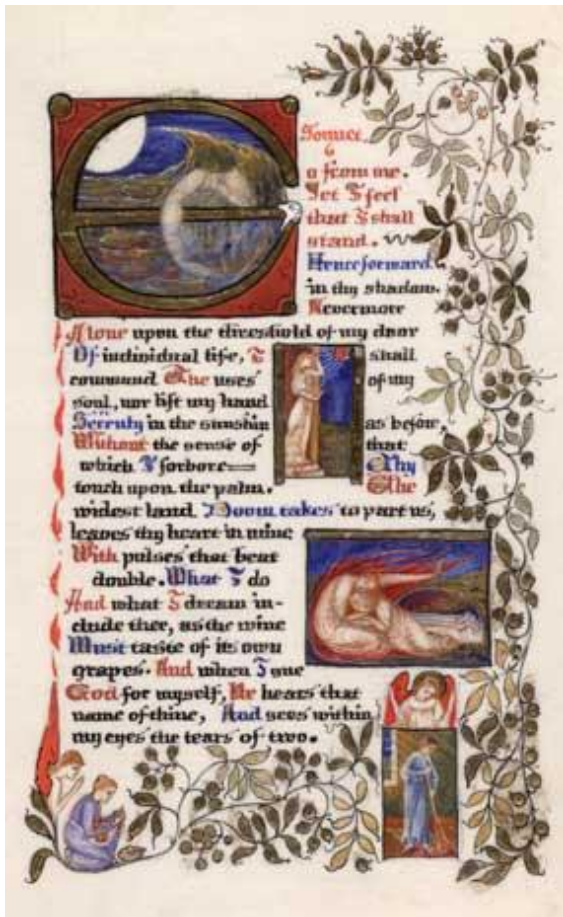 Sonnet
6
G
o from me.
Yet I feel
that I shall
stand.
Henceforward
in thy shadow.
Nevermore
Alone upon the threshold of my door
Of individual life, I shall
command The uses of my
soul, nor lift my hand
in the sunshin as before,
Without the sense of that
which I forbore= Thy
touch upon the palm. The
widest land Doom takes to part us,
leaves thy heart in mine
With pulses that beat
double. What I do
And what I dream in-
clude thee, as the wine
Must taste of its own
grapes. And when I sue
God for myself, He hears that
name of thine, And sees within
my eyes the tears of two.